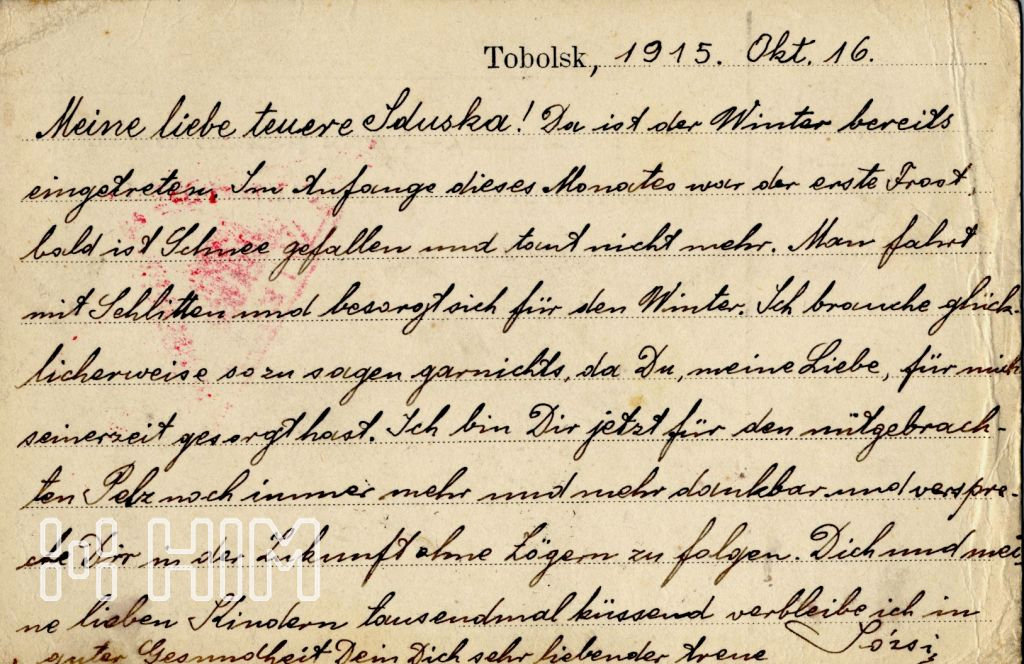 Tobolsk, 1915. Okt. 16.
Meine liebe teuere Iduska! Da ist der Winter bereits
eingetreten. Im Anfange dieses Monates war der erste Frost,
bald ist Schnee gefallen und taut nicht mehr. Man fahrt
mit Schlitten und besorgt sich für den Winter. Ich brauche glück-
licherweise sozusagen garnichts, da Du, meine Liebe, für mich
seinerzeit gesorgt hast. Ich bin Dir jetzt für den mitgebrach-
ten Pelz noch immer mehr und mehr dankbar und verspre-
che Dir in der Zukunft ohne Zögern zu folgen. Dich und mei-
ne lieben Kindern tausendmal küssend verbleibe ich in
guter Gesundheit Dein Dich sehr liebender treue
Józsi
HIM